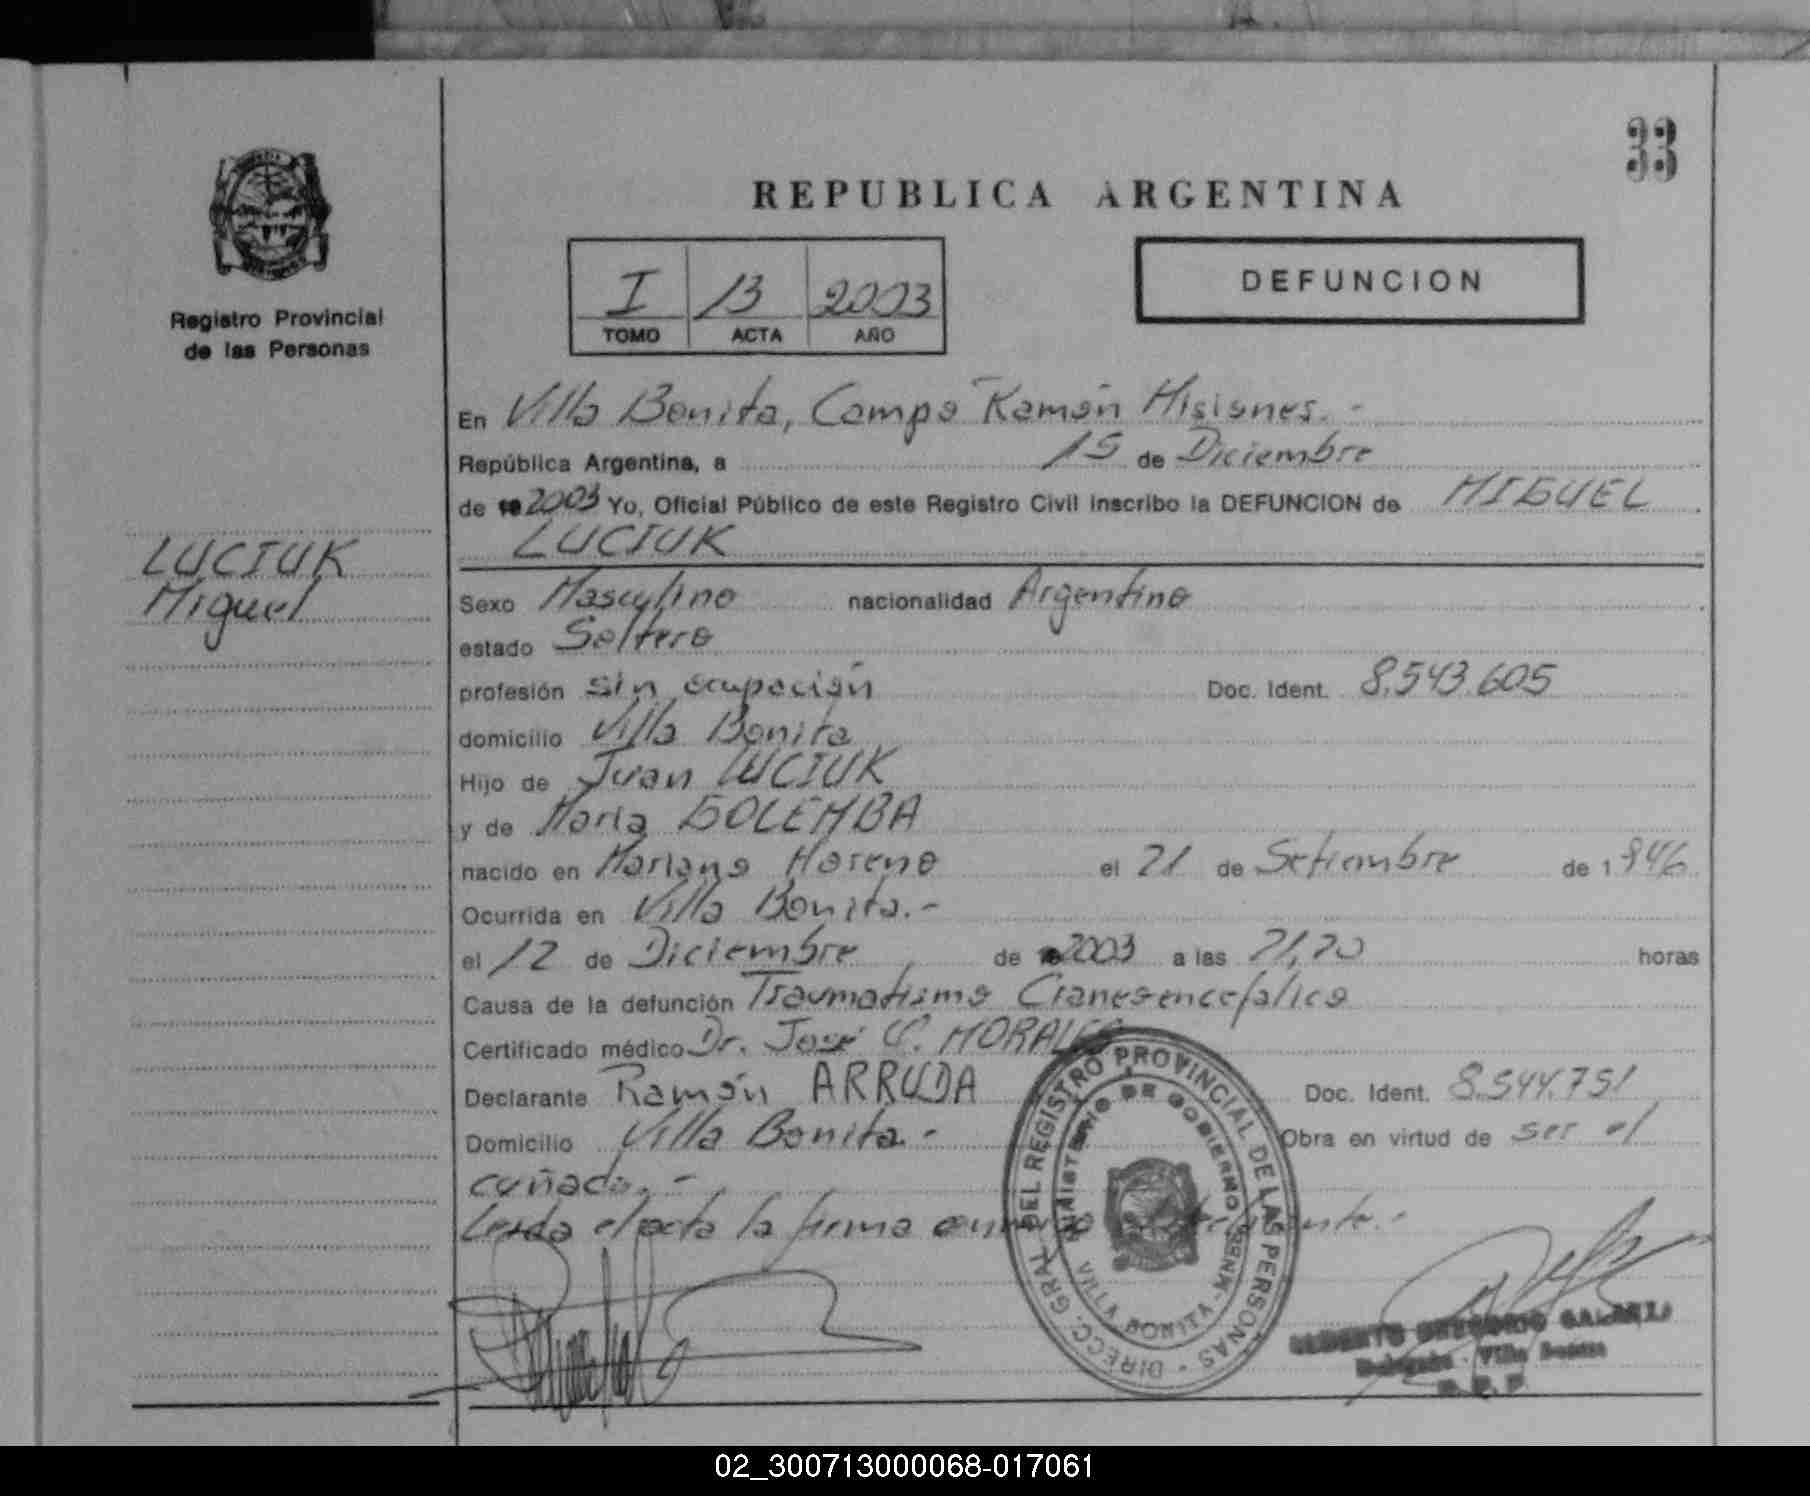 33
REPUBLICA ARGENTINA
I 13 2003
TOMO ACTA AÑO
DEFUNCION
Registro Provincial
de las Personas
LUCIUK
Miguel
En Villa Bonita, Campo Ramón Misiones.-
República Argentina, a 15 de Diciembre
de 2003 Yo, Oficial Público de este Registro Civil inscribo la DEFUNCION de MIGUEL
LUCIUK
Sexo Masculino nacionalidad Argentina
estado Soltero
profesión sin ocupación Doc. Ident. 8.543.605
domicilio Villa Bonita
Hijo de Juan LUCIUK
y de María GOLEMBA
nacido en Mariano Moreno el 21 de Setiembre de 1946
Ocurrida en Villa Bonita.-
el 12 de Diciembre de 2003 a las 21,20 horas
Causa de la defunción Traumatismo Craneoencefalico
Certificado médico Dr. José C. MORALES
Declarante Ramón ARRUDA Doc. Ident. 8.544.751
Domicilio Villa Bonita.- Obra en virtud de ser el
cuñado.-
Leida el acta la firma
DIRECC. GRAL. DEL REGISTRO PROVINCIAL DE LAS PERSONAS
MINISTERIO DE GOBIERNO
VILLA BONITA - MNES
GREGORIO
Villa Bonita
R. P. P.
02_300713000068-017061